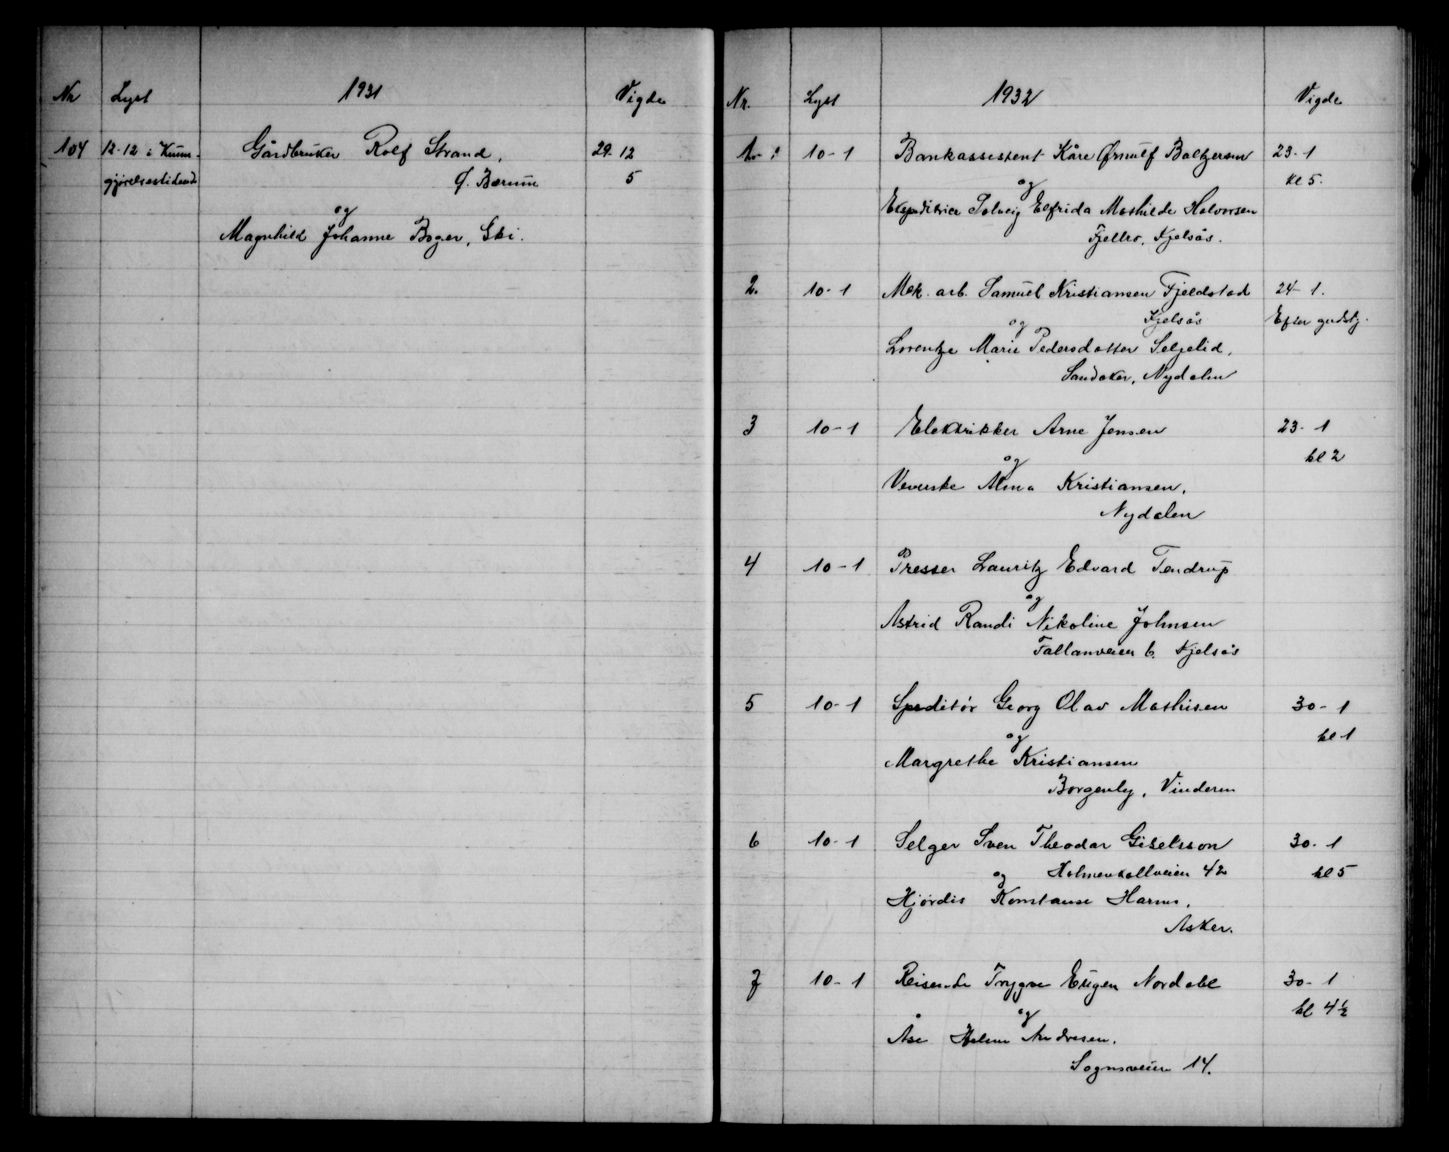 Nr Lyst 1931 Vigde
104 12-12 i Kunn- Gårdbruker Rolf Strand, 29-12
gjørelsestidende Ø. Bærum 5
og
Magnhild Johanne Boger, Ski.
Nr. Lyst 1932 Vigde
1. 10-1 Bankassistent Kåre Ørnulf Baltzersen 23-1
og kl 5.
Ekspeditrice Solveig Elfrida Mathilde Halvorsen
Fjellro, Kjelsås.
2. 10-1 Mek. arb. Samuel Kristiansen Fjeldstad 24-1.
og Kjelsås Efter gudstj.
Lorentze Marie Pedersdatter Seljelid,
Sandaker, Nydalen
3 10-1 Elektrikker Arne Jensen 23-1
og kl 2
Veverske Alma Kristiansen,
Nydalen
4 10-1 Presser Lauritz Edvard Tendrup
og
Astrid Randi Nikoline Johnsen
6. Kjelsås
5 10-1 Speditør Georg Olav Mathisen 30-1
og kl 1
Margrethe Kristiansen
Borgenby, Vinderen
6 10-1 Selger Sven Theodor Giselsson 30-1
og Holmenkollveien 42 kl 5
Hjørdis Konstanse
Asker.
7 10-1 Reisende Trygve Eugen Nordahl 30-1
og kl 4½
Åse Andresen.
Sognsveien 14.